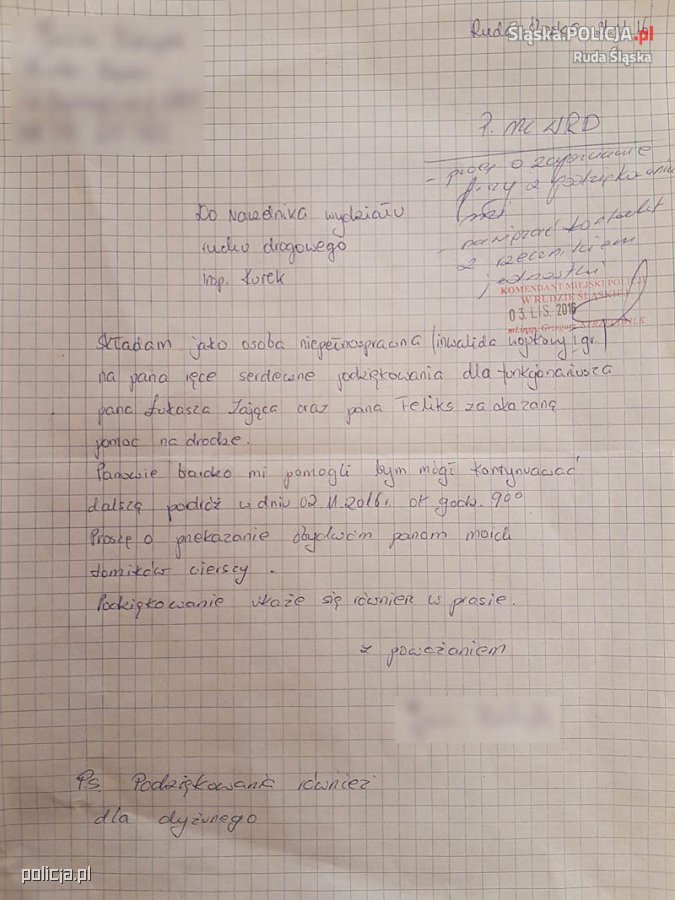 Ruda Śląska
Śląska.POLICJA.pl
Ruda Śląska
- proszę o zapoznanie
z podziękowaniem
- nawiązać kontakt
z rzecznikiem
jednostki
KOMENDANT MIEJSKI POLICJI
W RUDZIE ŚLĄSKIEJ
03. LIS. 2016
Do Naczelnika wydziału
ruchu drogowego
insp. Kurek
Składam jako osoba niepełnosprawna (inwalida wojskowy I gr)
na pana ręce serdeczne podziękowania dla funkcjonariusza
pana Łukasza Zająca oraz pana Feliks za okazaną
pomoc na drodze.
Panowie bardzo mi pomogli bym mógł kontynuować
dalszą podróż w dniu 02.11.2016r. ok godz. 9⁰⁰
Proszę o przekazanie obydwóm panom moich
Podziękowanie ukaże się równiez w prasie.
z poważaniem
P.s. Podziękowania również
dla dyżurnego
policja.pl